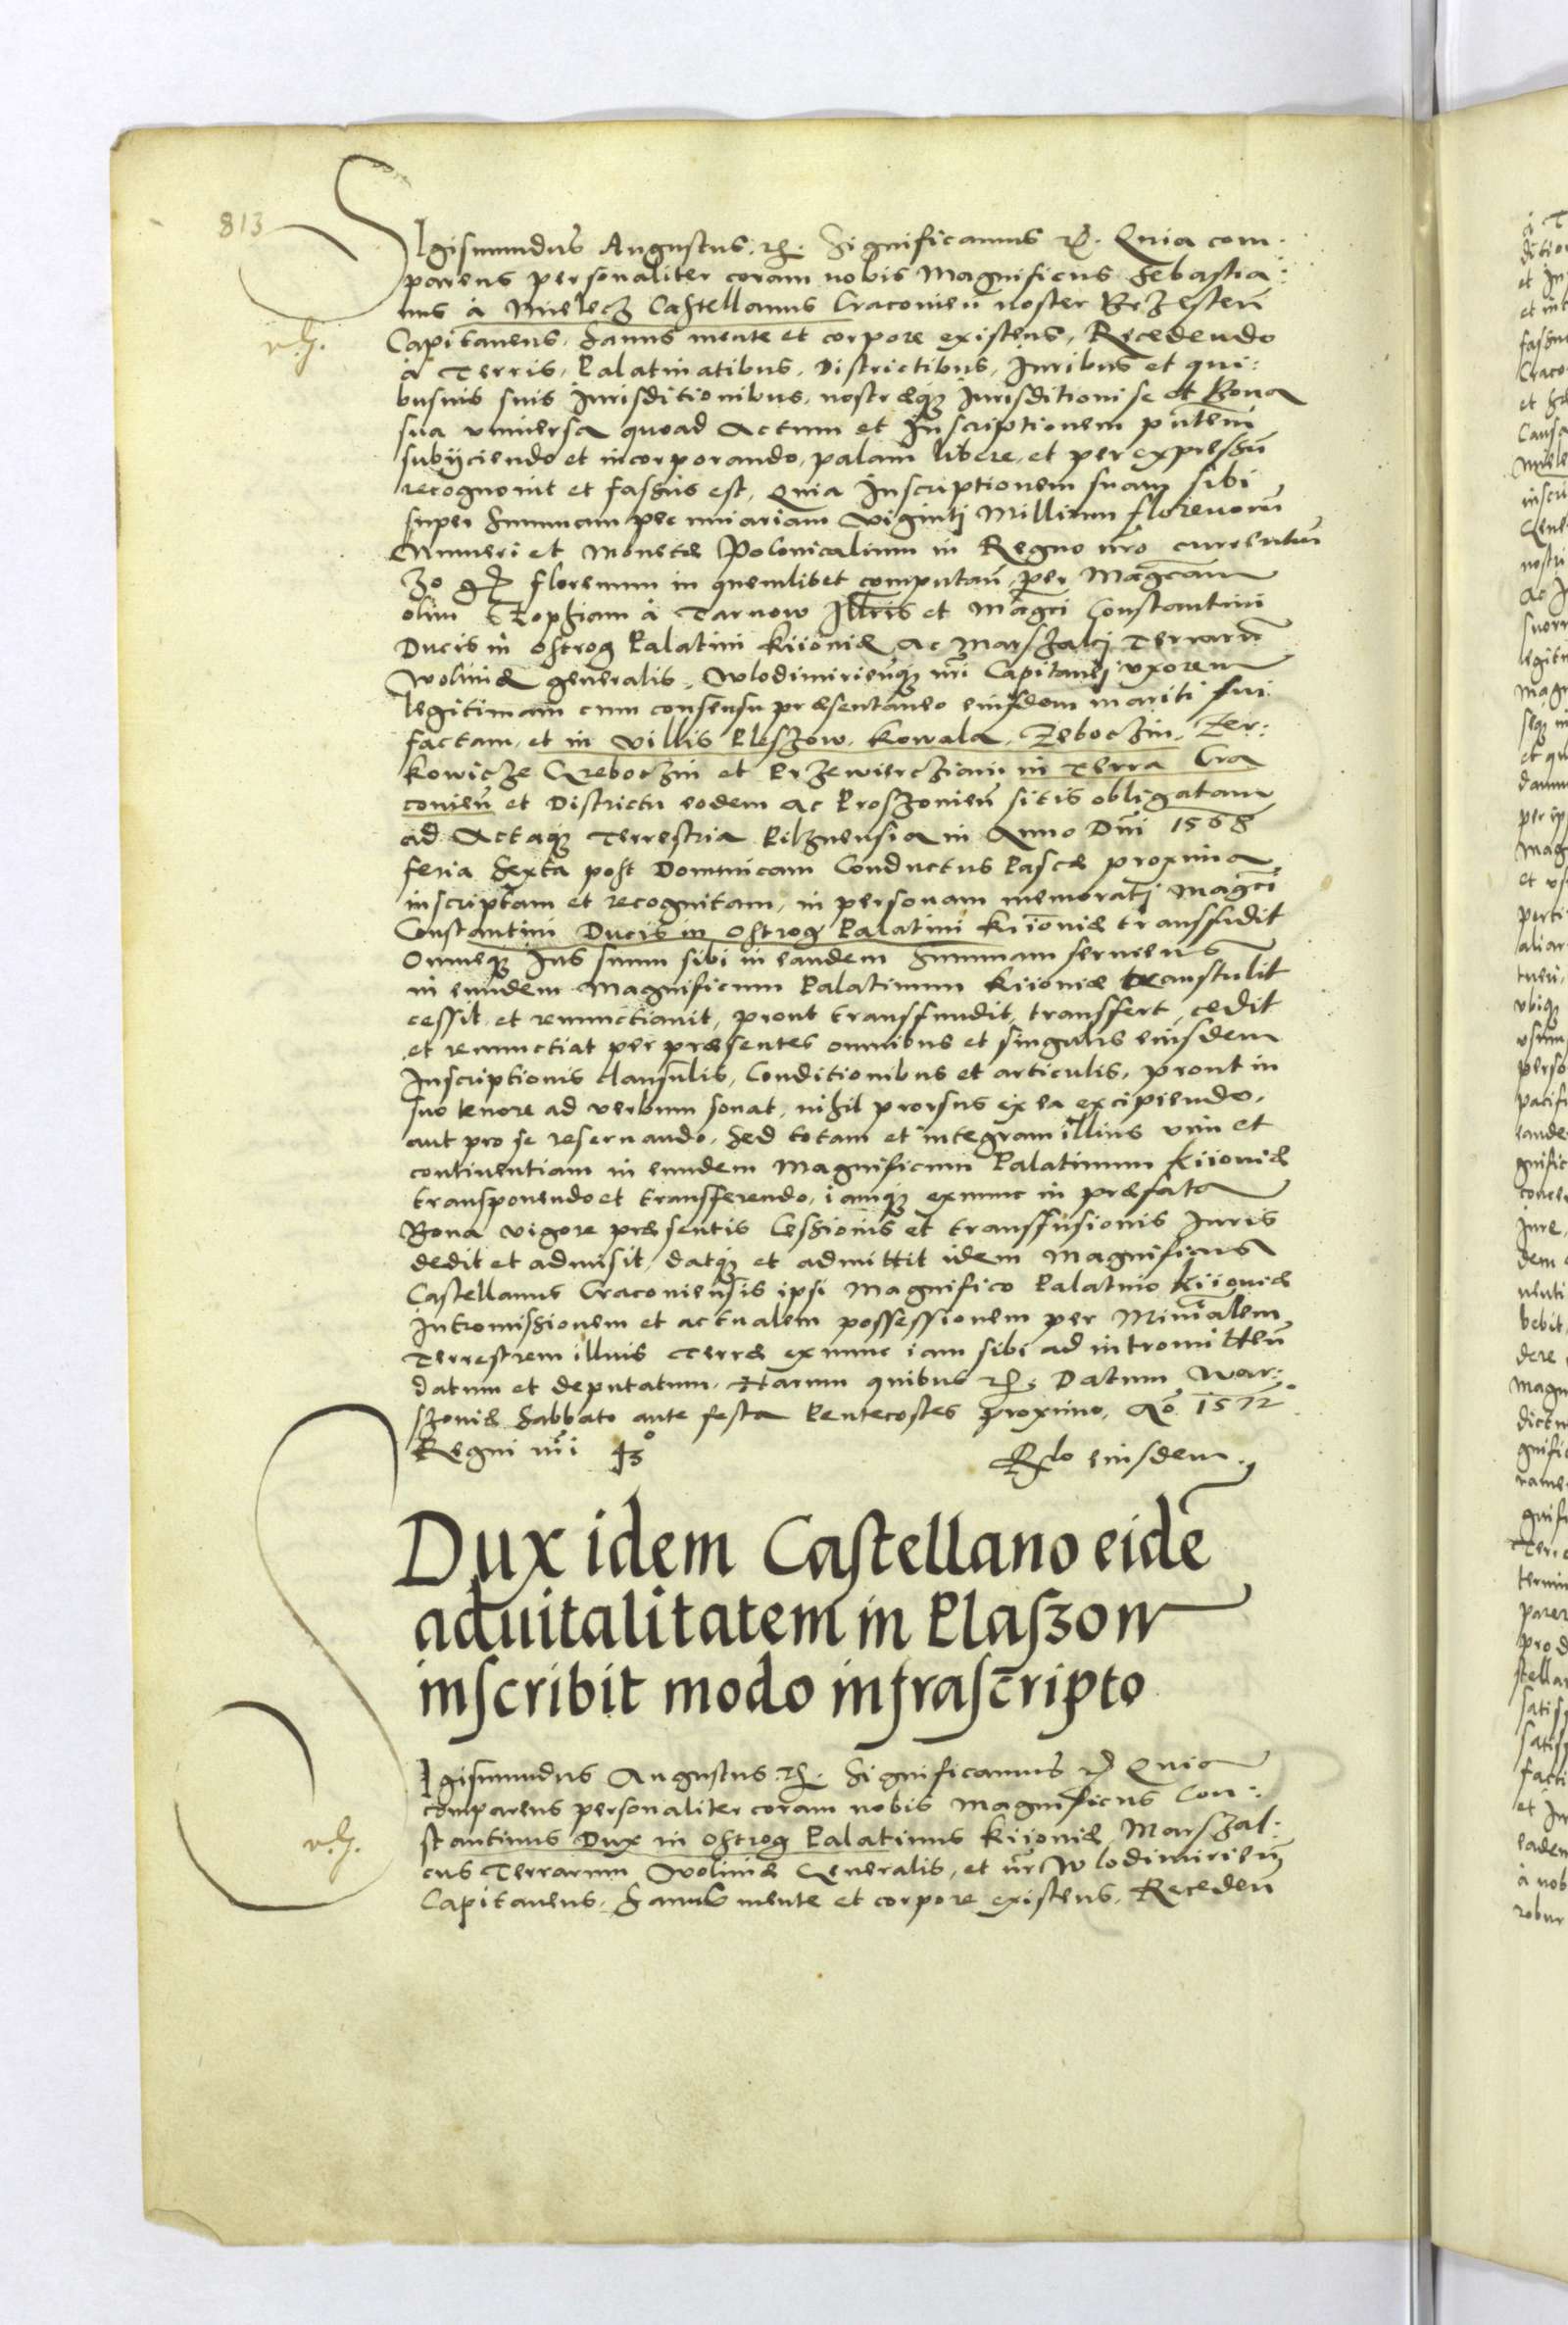 813
Sigismundus Augustus. Significamus Quia com:
parens personaliter coram nobis Magnificus Sebastia:
nus à Mielecz Castellanus Cracovien̄ noster Brzesten̄
Capitaneus. Sanus mente et corpore existens, Recedendo
à Terris, Palatinatibus, Districtibus, Iuribus et qui:
busvis suis Iurisditionibus, nostræq; Iurisditioni se et Bona
sua universa quoad Actum et Inscriptionem pn̄tem
subijciendo et incorporando, palam libere, et per expressū
recognovit et fassus est, Quia Inscriptionem suam sibi
super Summam pecuniariam Viginti Millium florenorū
Numeri et Monetæ Polonicalium in Regno nr̄o currentiū
30 gr̄ florenum in quemlibet computan̄, per Maḡcam
olim Zophiam à Tarnow Ill̄ris et Maḡci Constantini
Ducis in Ostrog Palatini Kiioviæ Ac Marszalcj Terrarū
Woliniæ generalis, Wlodimirien̄q; nr̄i Capitanej uxorem
legitimam cum consensu præsentaneo eiusdem mariti sui
factam, et in Villis Pleszow, Kowala, Zeboczin, Zer:
kowicze Greboczin et Przewiercziani in Terra Cra
covien̄ et Districtu eodem Ac Proszovien̄ sitis obligatam
ad Actaq; Terrestria Pilznensia in Anno Dn̄i 1568
feria Sexta post Dominicam Conductus Pascæ proxima
inscriptam et recognitam, in personam memoratj Maḡci
Constantini Ducis in Ostrog Palatini Kiioviæ transfudit
Omneq; Ius suum sibi in eandem Summam serviens
in eundem Magnificum Palatinum Kiioviæ transtulit
cessit et renunctiavit, prout transfundit, transfert, cedit
et renunctiat per præsentes omnibus et singulis eiusdem
Inscriptionis clausulis, Conditionibus et articulis, prout in
suo tenore ad verbum sonat, nihil prorsus ex ea excipiendo,
aut pro se reservando, Sed totam et integram illius vim et
continentiam in eundem Magnificum Palatinum Kiioviæ
transponendo et transferendo, iamq; exnunc in præfata
Bona vigore præsentis Cessionis et transfusionis Iuris
dedit et admisit, datq; et admittit idem Magnificus
Castellanus Cracoviensis ipsi Magnifico Palatino Kiioviæ
Intromissionem et actualem possessionem per Min̄alem
Terrestrem illius Terræ exnunc iam sibi ad intromitten̄
datum et deputatum. Harum quibus Datum War:
szoviæ Sabbato ante festa Pentecostes proximo, Aō 1572
Regni nr̄i 43°
Rlo eiusdem
Dux idem Castellano eidē
advitalitatem in Plaszow
inscribit modo infrascripto
Sigismundus Augustus. Significamus Quia
comparens personaliter coram nobis Magnificus Con:
stantinus Dux in Ostrog Palatinus Kiioviæ Marszal:
cus Terrarum Voliniæ Generalis, et nr̄ Wlodimirien̄
Capitaneus. Sanus mente et corpore existens. Receden̄